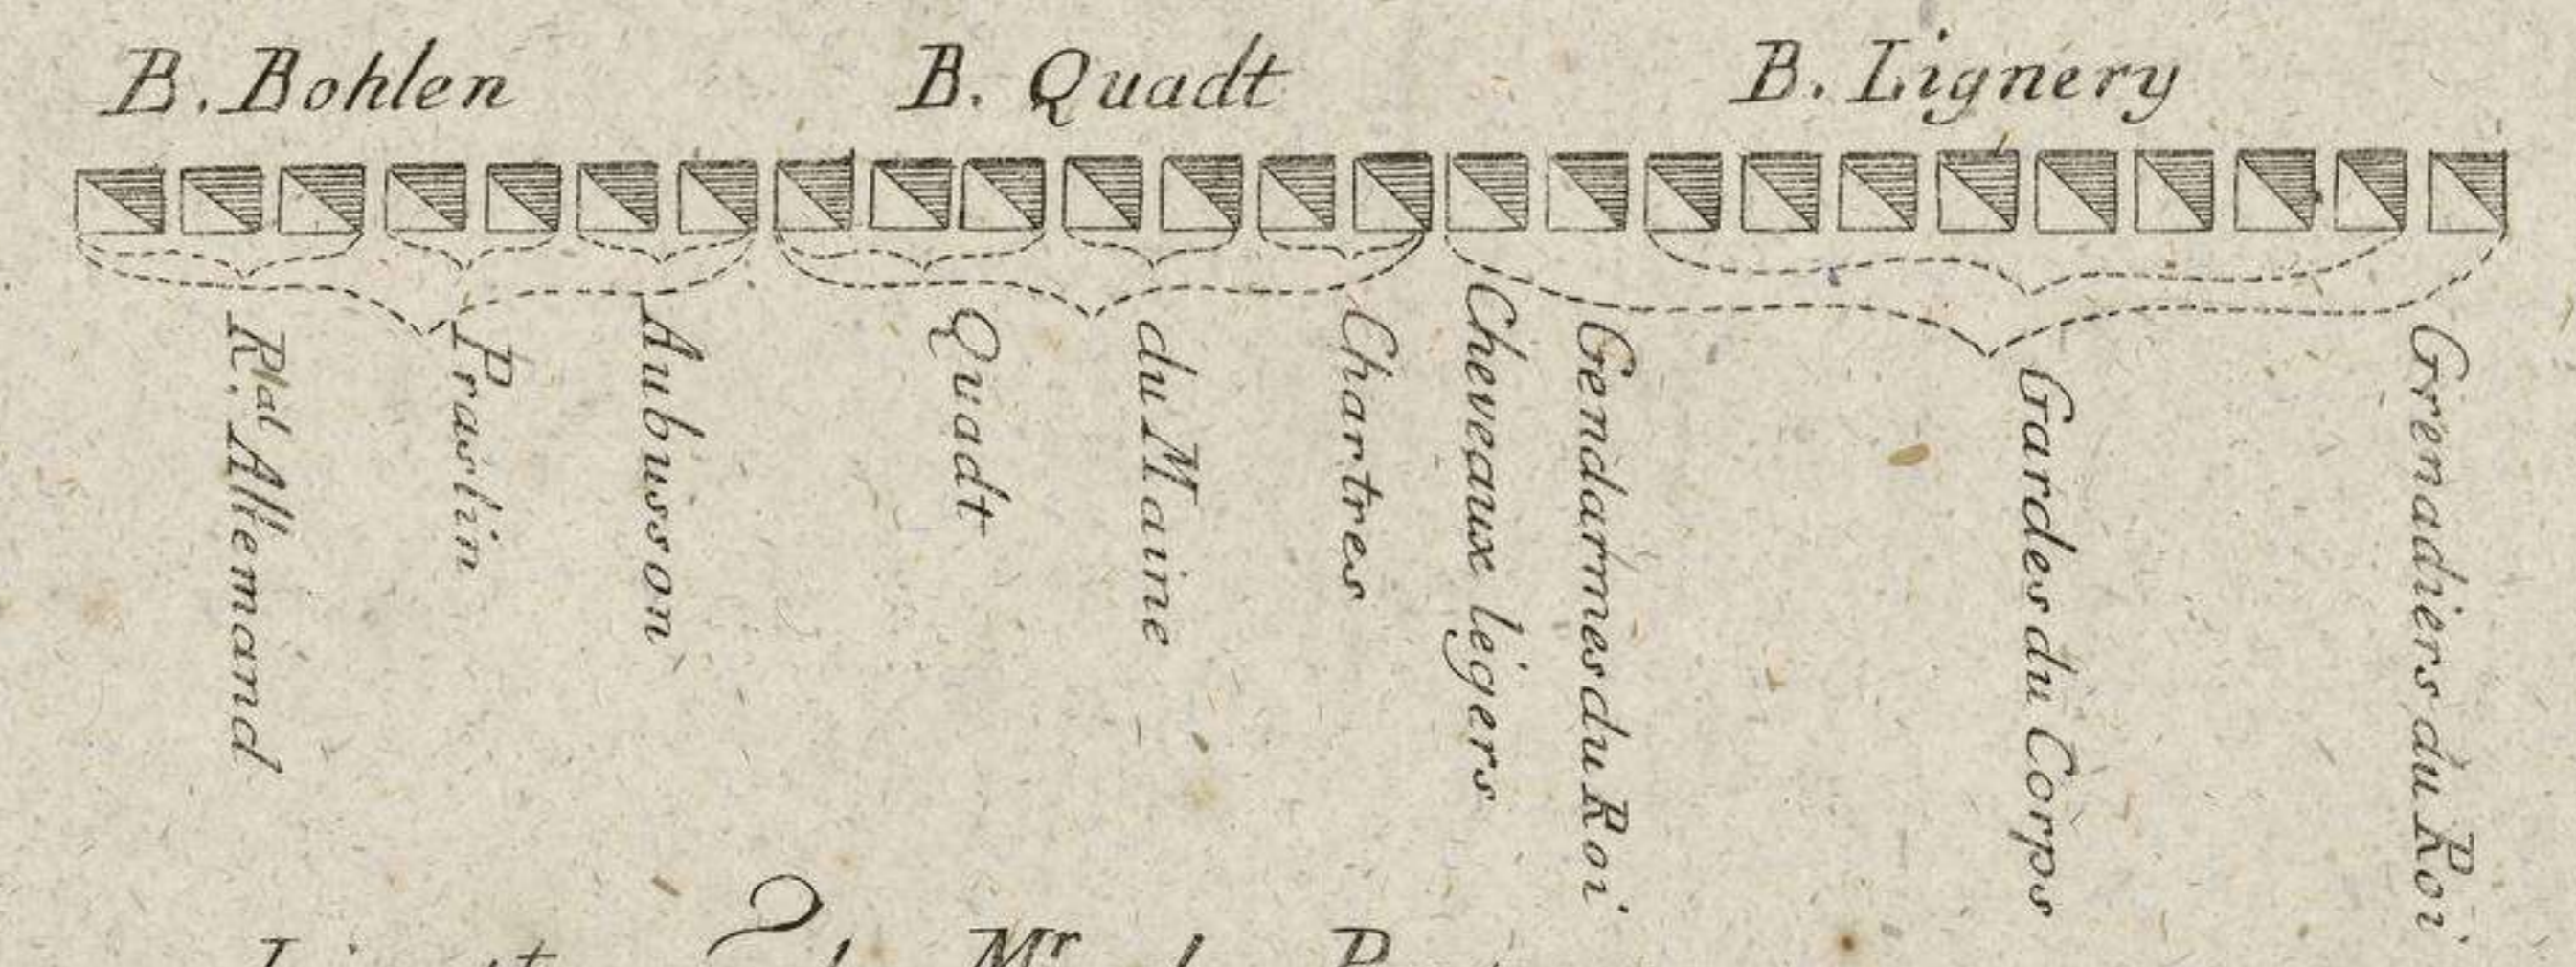 B. Bohlen
B. Quadt
B. Lignery
R.al Allemand
Praslin
Aubusson
Quadt
du Maine
Chartres
Cheveaux légers
Gendarmes du Roi
Gardes du Corps
Grenadiers du Roi
Mr